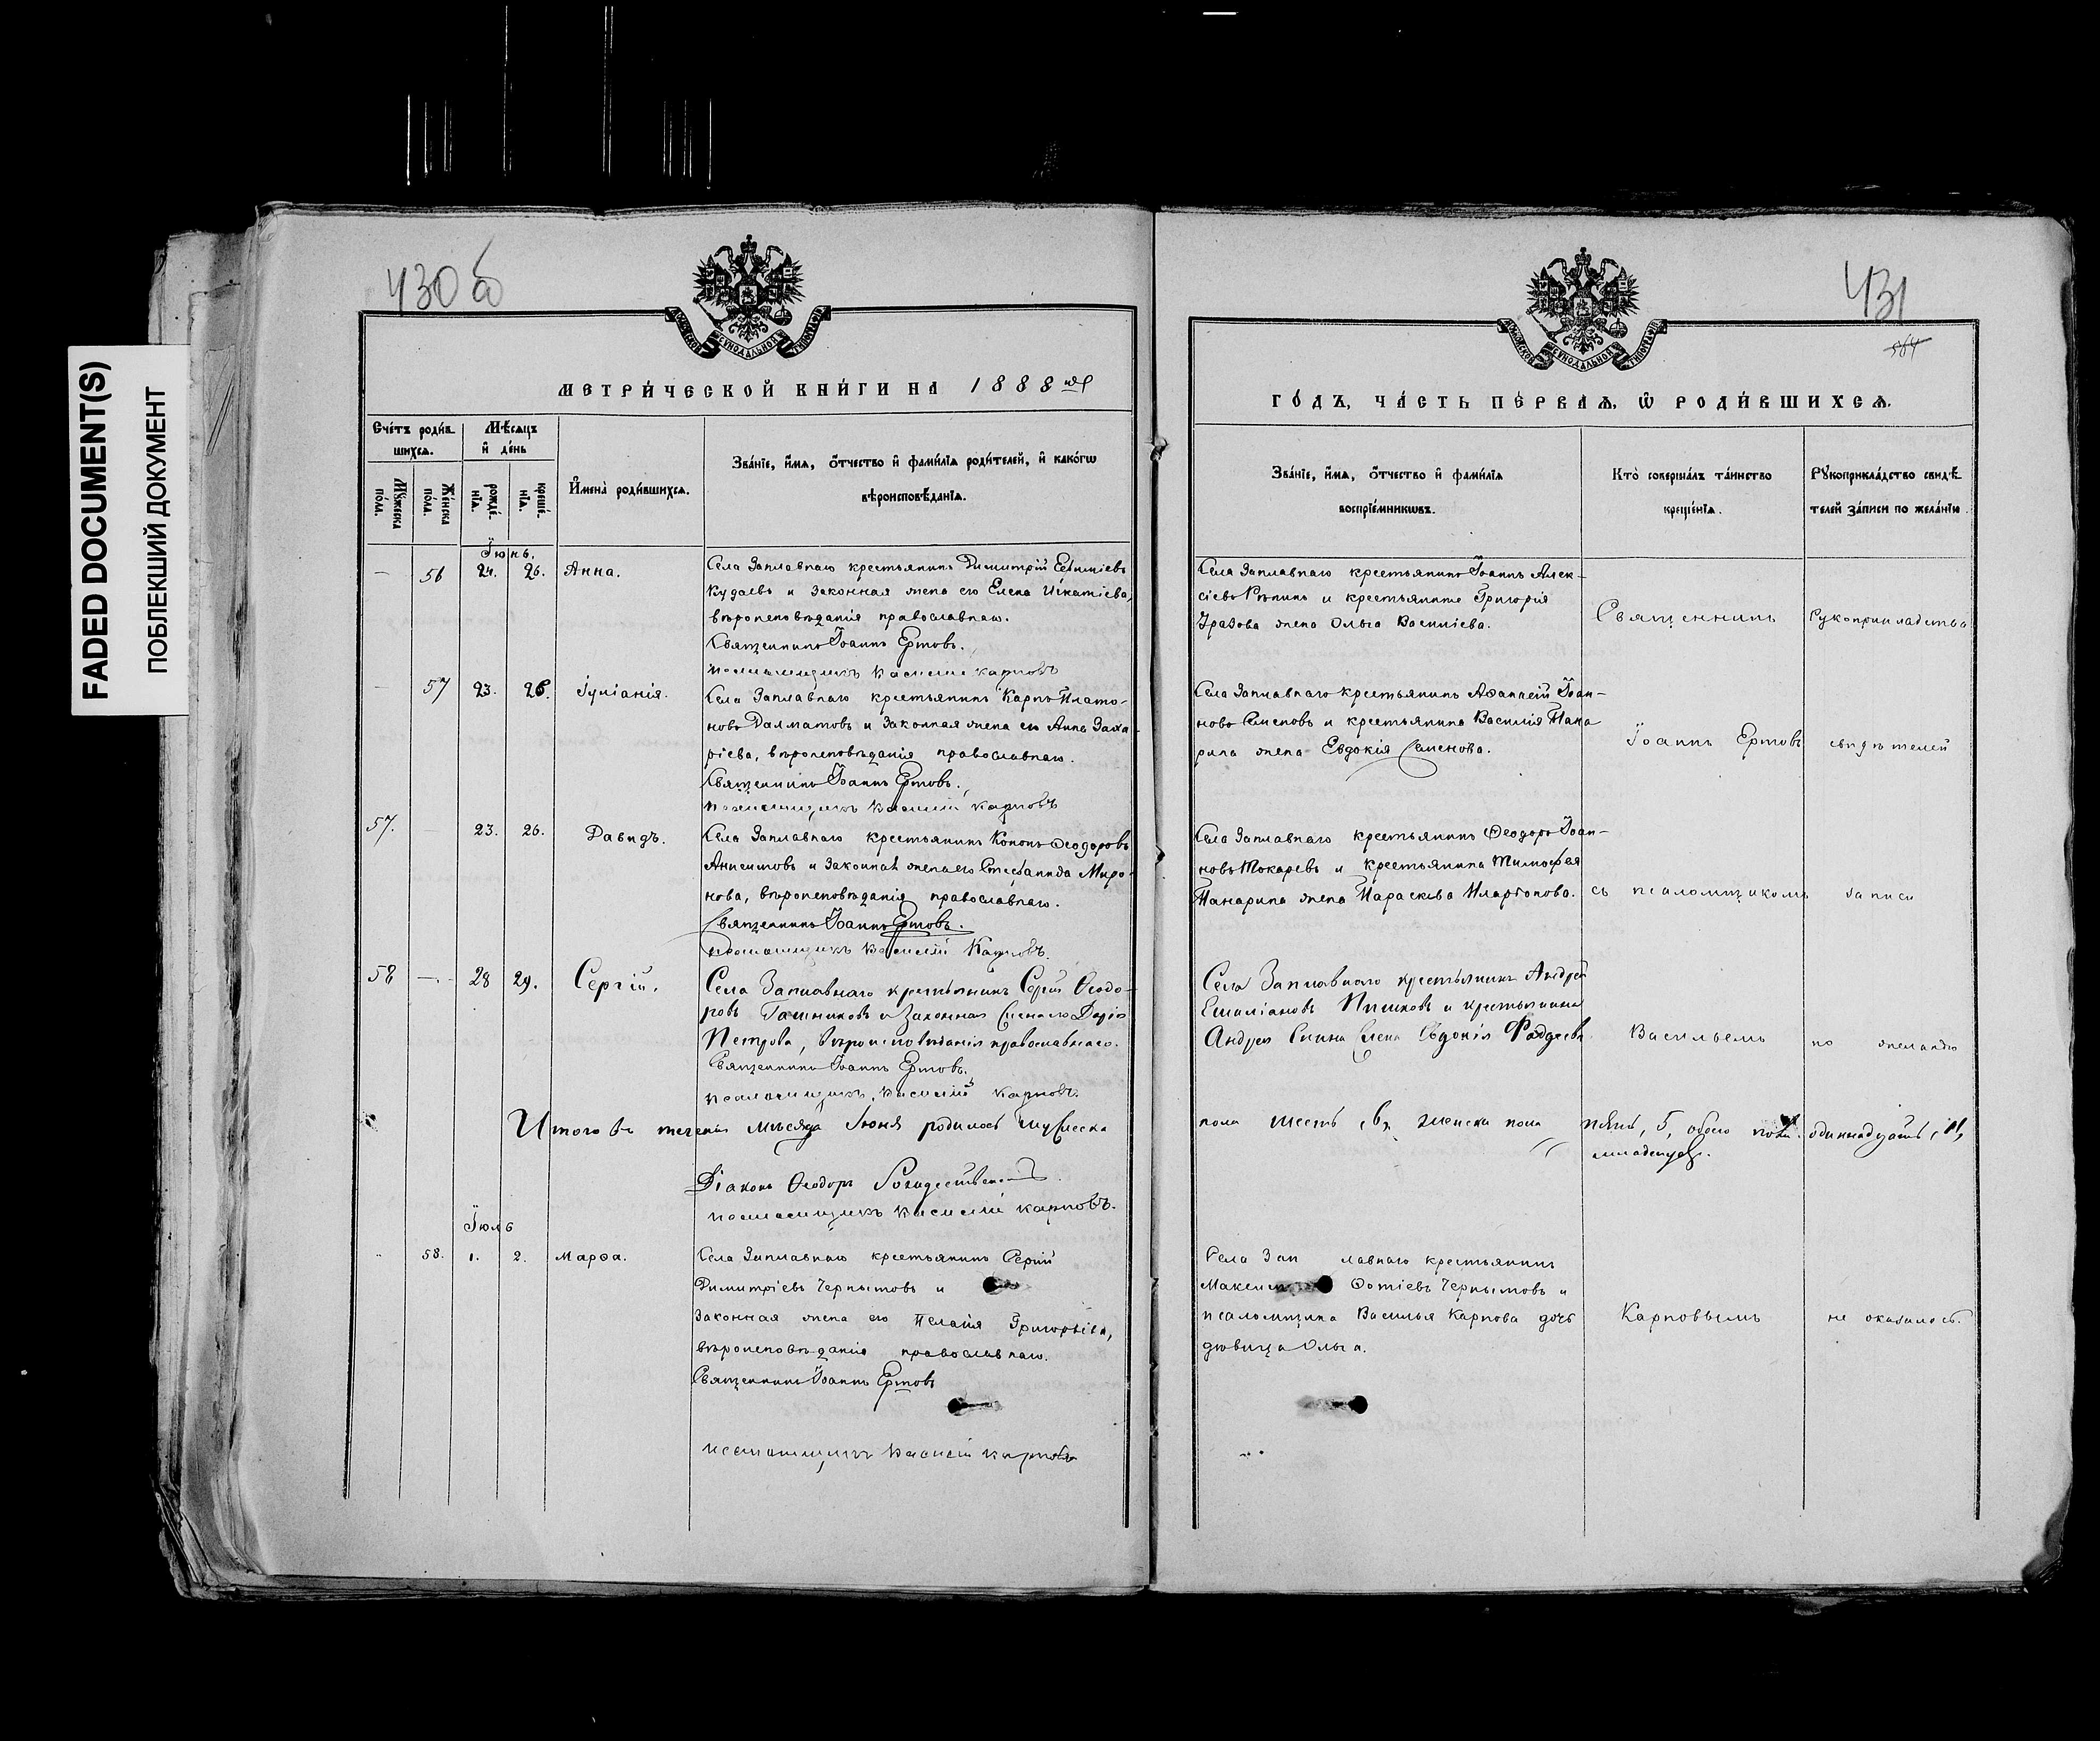 FADED DOCUMENT(S)
ПОБЛЕКШИЙ ДОКУМЕНТ
430 об
МЕТРИЧЕСКОЙ КНИГИ НА 1888
Счетъ родив-
шихся.
Мѣсяцъ
и день
Мужеска пола.
Женска пола.
рожденія.
крещенія.
Имена родившихся.
Званіе, имя, отчество и фамилія родителей, и какогѡ
вѣроисповѣданія.
Іюнь.
56 24. 26. Анна.
Села Заплавнаго крестьянинъ Димитрій Евѳиміевъ
Кудаевъ и законная жена его Елена Игнатіева,
вѣроисповѣданія православнаго.
Священникъ Іоаннъ Ертовъ.
псаломщикъ Василій Карповъ
57 23. 26. Іуліанія.
Села Заплавнаго крестьянинъ Карпъ Плато-
новъ Далматовъ и законная жена его Анна Заха-
ріева, вѣроисповѣданія православнаго.
Священникъ Іоаннъ Ертовъ.
псаломщикъ Василій Карповъ
57. 23. 26. Давидъ.
Села Заплавнаго крестьянинъ Кононъ Ѳеодоровъ
Анисимовъ и законная жена его Стефанида Миро-
нова, вѣроисповѣданія православнаго.
Священникъ Іоаннъ Ертовъ.
псаломщикъ Василій Карповъ.
58 28 29. Сергій.
Села Заплавнаго крестьянинъ Сергій Ѳеодо-
ровъ и законная жена его Дарія
Петрова, вѣроисповѣданія православнаго.
Священникъ Іоаннъ Ертовъ.
псаломщикъ Василій Карповъ.
Итого въ теченіи мѣсяца Іюня родилось мужеска
Діаконъ Ѳеодоръ Рождественскій
псаломщикъ Василій Карповъ.
Іюль
58. 1. 2. Марѳа.
Села Заплавнаго крестьянинъ Сергій
Димитріевъ Чернышовъ и
законная жена его Пелагія Григорьева,
вѣроисповѣданія православнаго.
Священникъ Іоаннъ Ертовъ
псаломщикъ Василій Карповъ
431
564
ГОДЪ, ЧАСТЬ ПЕРВАЯ, Ѡ РОДИВШИХСЯ.
Званіе, имя, отчество и фамилія
воспріемникѡвъ.
Кто совершалъ таинство
крещенія.
Рукоприкладство свидѣ-
телей записи по желанію.
Села Заплавнаго крестьянинъ Іоаннъ Алек-
сіевъ Рѣпинъ и крестьянина Григорія
жена Ольга Василіева.
Священникъ
Рукоприкладства
Села Заплавнаго крестьянинъ Іоан-
новъ и крестьянина Василія
жена Евдокія Семенова.
Іоаннъ Ертовъ
свидѣтелей
Села Заплавнаго крестьянинъ Ѳеодоръ Іоан-
новъ Токаревъ и крестьянина Тимофея
жена Параскева Иларіонова.
съ псаломщикомъ
записи
Села Заплавнаго крестьянинъ Андрей
Емиліановъ и крестьянина
Андрея жена Евдокія Фаддеева
Васильемъ
по желанію
пола шесть, 6, женска пола пять, 5, обоего пола одиннадцать, 11,
младенцевъ.
Села Заплавнаго крестьянинъ
Максимъ Ѳотіевъ Чернышовъ и
псаломщика Василья Карпова дочь
дѣвица Ольга.
Карповымъ
не оказалось.